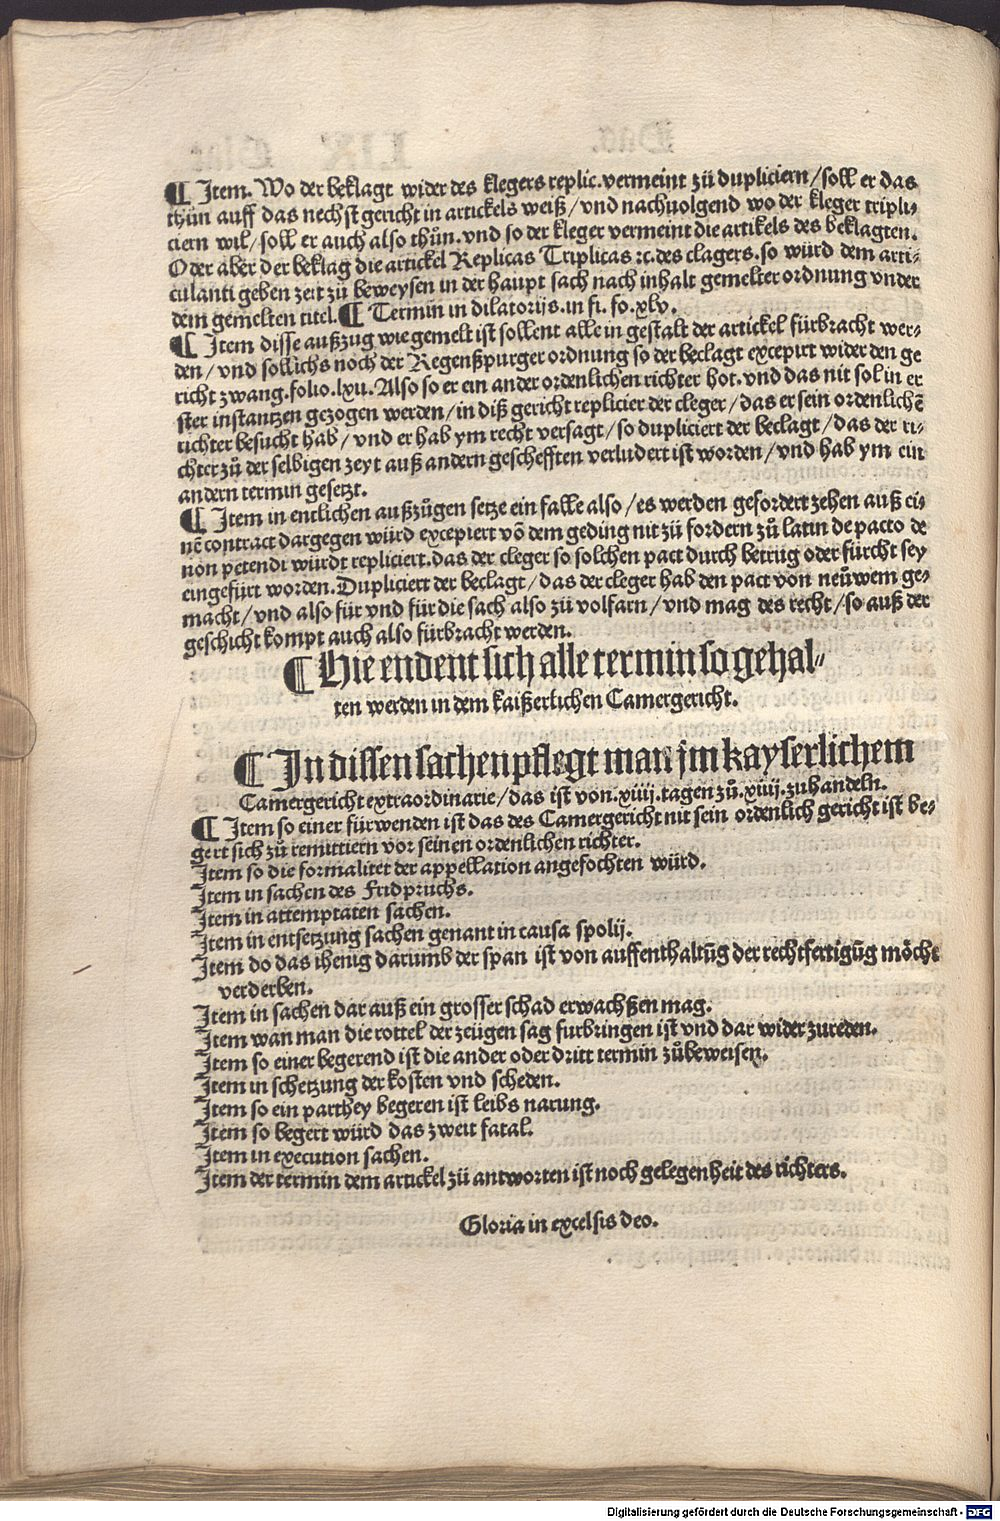 ¶ Item. Wo der beklagt wider des klegers replic. vermeint zů dupliciern / soll er das
thůn auff das nechst gericht in artickels weiß / vnd nachuolgend wo der kleger tripli⸗
ciern wil / soll er auch also thůn. vnd so der kleger vermeint die artikels des beklagten.
Oder aber der beklag die artickel Replicas Triplicas ꝛc. des clagers. so würd dem arti⸗
culanti geben zeit zů beweysen in der haupt sach nach inhalt gemelter ordnung vnder
dem gemelten titel. ¶ Termin in dilatorijs. in fi. fo. xlv.
¶ Item disse außzug wie gemelt ist sollent alle in gestalt der artickel fürbracht wer⸗
den / vnd sollichs noch der Regenßpurger ordnung so der beclagt excepirt wider den ge
richt zwang. folio. lxii. Also so er ein ander ordenlichen richter hot. vnd das nit sol in er
ster instantzen gezogen werden / in diß gericht replicier der cleger / das er sein ordenlichē
richter besucht hab / vnd er hab ym recht versagt / so dupliciert der beclagt / das der ri⸗
chter zů der selbigen zeyt auß andern geschefften verludert ist worden / vnd hab ym ein
andern termin gesetzt.
¶ Item in entlichen außzügen setze ein falle also / es werden gefordert zehen auß ei⸗
nē contract dargegen würd excepiert vō dem geding nit zů fordern zů latin de pacto de
non petendi würdt repliciert. das der cleger so solchen pact durch betrug oder fürcht sey
eingefürt worden. Dupliciert der beclagt / das der cleger hab den pact von neüwem ge⸗
macht / vnd also für vnd für die sach also zů volfarn / vnd mag des recht / so auß der
geschicht kompt auch also fürbracht werden.
¶ Hie endent sich alle termin so gehal⸗
ten werden in dem kaißerlichen Camergericht.
¶ In dissen sachen pflegt man jm kayserlichem
Camergericht extraordinarie / das ist von. xiiij. tagen zů. xiiij. zuhandeln.
¶ Item so einer fürwenden ist das des Camergericht nit sein ordenlich gericht ist be⸗
gert sich zů remittiern vor seinen ordenlichen richter.
Item so die formalitet der appellation angefochten würd.
Item in sachen des Fridpruchs.
Item in attemptaten sachen.
Item in entsetzung sachen genant in causa spolij.
Item do das ihenig darumb der span ist von auffenthaltūg der rechtfertigūg möcht
verderben.
Item in sachen dar auß ein grosser schad erwachßen mag.
Item wan man die rottel der zeügen sag furbringen ist vnd dar wider zureden.
Item so einer begerend ist die ander oder dritt termin zůbeweisen.
Item in schetzung der kosten vnd scheden.
Item so ein parthey begeren ist leibs narung.
Item so begert würd das zweit fatal.
Item in execution sachen.
Item der termin dem artickel zů antworten ist noch gelegenheit des richters.
Gloria in excelsis deo.
Digitalisierung gefördert durch die Deutsche Forschungsgemeinschaft - DFG